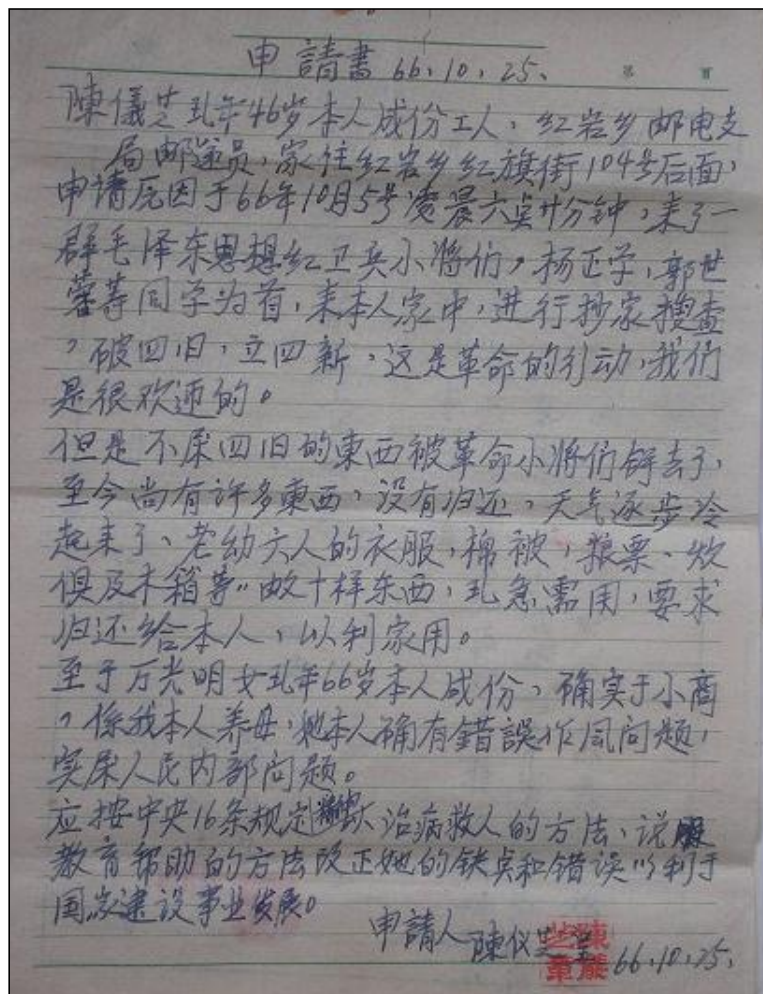 申請書 66.10.25.
陳儀芝现年46岁本人成份工人、红岩乡邮电支
局邮递员,家住红岩乡红旗街104号后面,
申请原因于66年10月5号凌晨六点廿分钟,来了一
群毛泽东思想红卫兵小将们,杨正学,郭世
蓉等同学为首,来本人家中,进行抄家搜查
,破四旧,立四新,这是革命的行动,我们
是很欢迎的。
但是不属四旧的東西被革命小将们 去了,
至今尚有許多東西,没有归还,天气逐步冷
起来了、老幼六人的衣服,棉被,粮票、炊
俱及木箱等 数十样东西,现急需用,要求
归还给本人,以利家用。
至于万光明女现年66岁本人成份,确实于小商
,係我本人养母,她本人确有錯誤作风问题,
实属人民内部问题。
应按中央16条规定 治病救人的方法,说服
教育帮助的方法改正她的缺点和错误以利于
国家建设事业发展。
申請人 陳仪芝 呈 66.10.25.